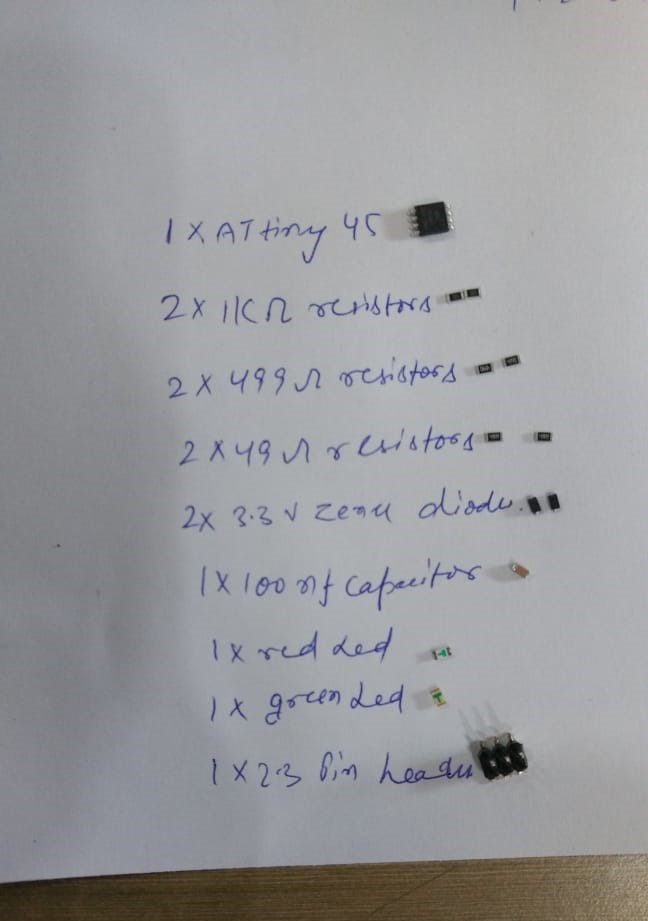 1 X ATtiny 45
2 X 1KΩ resistors
2 X 499Ω resistors
2 X 49Ω resistors
2X 3.3V zener diode.
1 X 100 nf capacitor
1 X red Led
1 X green Led
1 X 2.3 Pin header